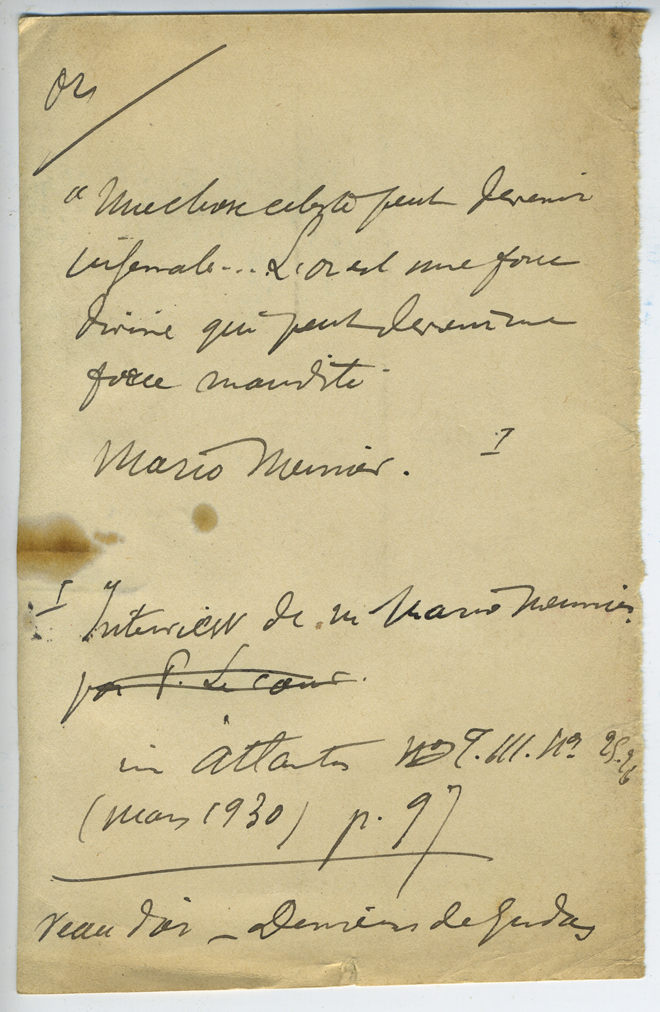 Or
" Une chose céleste peut devenir
infernale... L'or est une force
divine qui peut devenir une
force maudite
Mario Meunier. I
I " Interview de M Mario Meunier
par P. Le Cour.
in Atlantis No T. III. No 25.26
(Mars 1930) p. 97
Veau d'or – Deniers de Judas